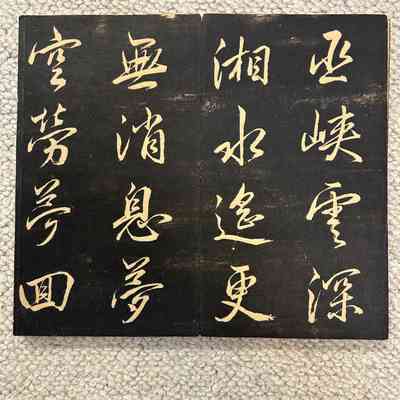 巫峡雲深
湘水遥更
無消息夢
空勞夢回